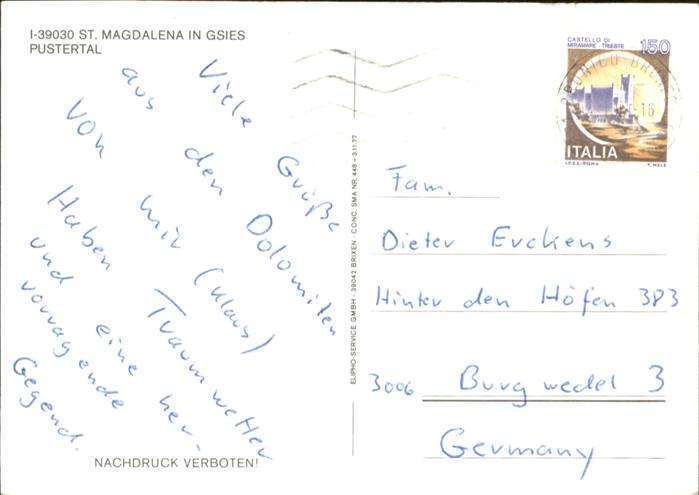 I-39030 ST. MAGDALENA IN GSIES
PUSTERTAL
Viele Grüße
aus den Dolomiten
von mir (Klaus)
Haben Traumwetter
und eine her-
vorragende
Gegend.
NACHDRUCK VERBOTEN!
ELIPHO-SERVICE GMBH - 39042 BRIXEN CONC. SMA NR. 448 - 3.11.77
CASTELLO DI
MIRAMARE · TRIESTE
150
ITALIA
I.P.Z.S.-ROMA
Fam.
Dieter Erckens
Hinter den Höfen 383
3006 Burgwedel 3
Germany